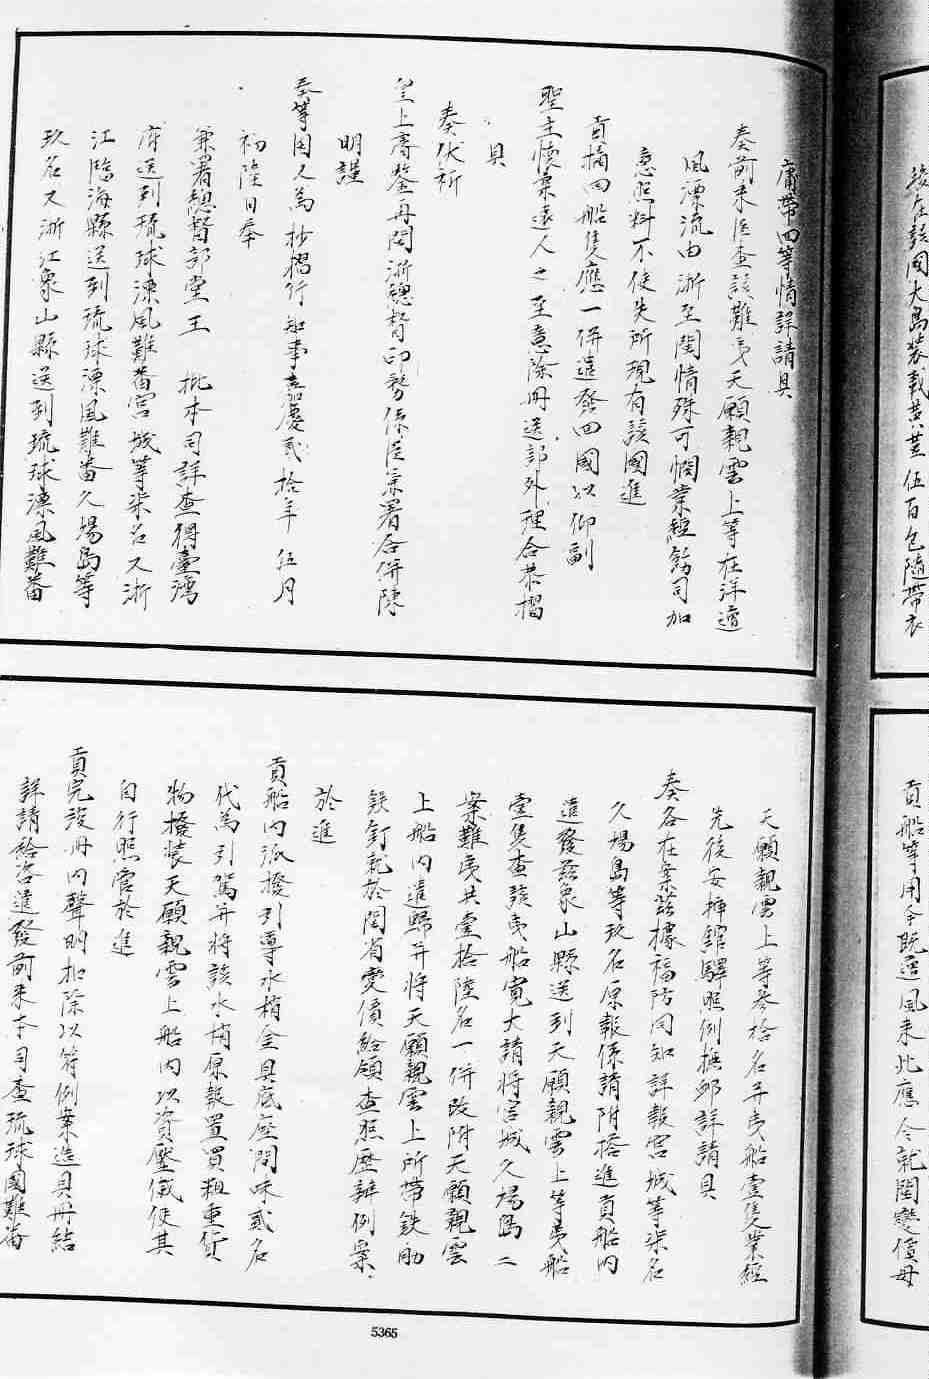 貢船等用今既遭風來此應令就閩變價毋
後在該國大島裝載黃荳伍百包隨帶衣
庸帶回等情詳請具
奏前來臣查該難夷天願親雲上等在洋遭
風漂流由浙至閩情殊可憫業經飭司加
意照料不使失所現有該國進
貢摘回船隻應一併遣發回國以仰副
聖主懷柔遠人之至意除冊送部外理合恭摺
具
奏伏祈
皇上睿鑒再閩浙總督印務係臣兼署合併陳
明謹
奏等因又為抄摺行知事嘉慶貳拾年伍月
初陸日奉
兼署總督部堂王 批本司詳查得臺灣
府送到琉球漂風難番宮城等柒名又浙
江臨海縣送到琉球漂風難番久場島等
玖名又浙江象山縣送到琉球漂風難番
天願親雲上等參拾名并夷船壹隻業經
先後安插館驛照例撫卹詳請具
奏各在案茲據福防同知詳報宮城等柒名
久場島等玖名原報係請附搭進貢船內
遣發茲象山縣送到天願親雲上等夷船
壹隻查該夷船寬大請將宮城久場島二
案難夷共壹拾陸名一併改附天願親雲
上船內遣歸并將天願親雲上所帶鉄䤃
鉄釘就於閩省變價給領查照歷辦例案
於進
貢船內派撥引導水梢金具底座間味貳名
代為引駕并將該水梢原報置買粗重貨
物撥裝天願親雲上船內以資壓儎使其
自行照管於進
貢完竣冊內聲明扣除以符例案造具冊結
詳請給咨遣發前來本司查琉球國難番
5365